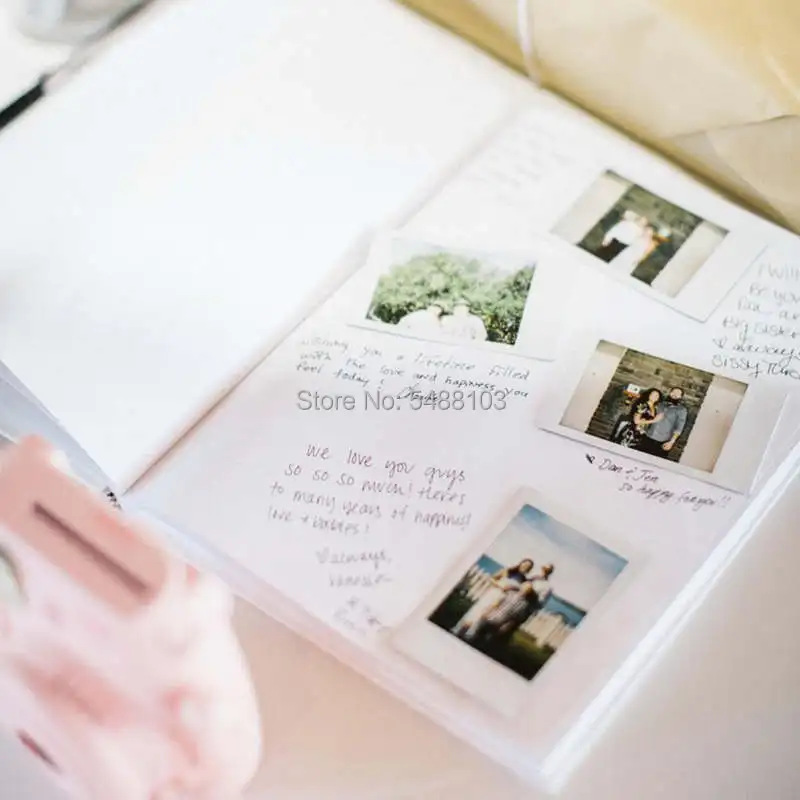 I will
Be you
Big sister
always
SISSY
wishing you a lifetime filled
with the love and happiness you
feel today!
Store No: 5488103
♥ Dan & Jen
so happy for you!!
We love you guys
so so so much! Here's
to many years of happiness!
love +
♡ always,
Vanessa